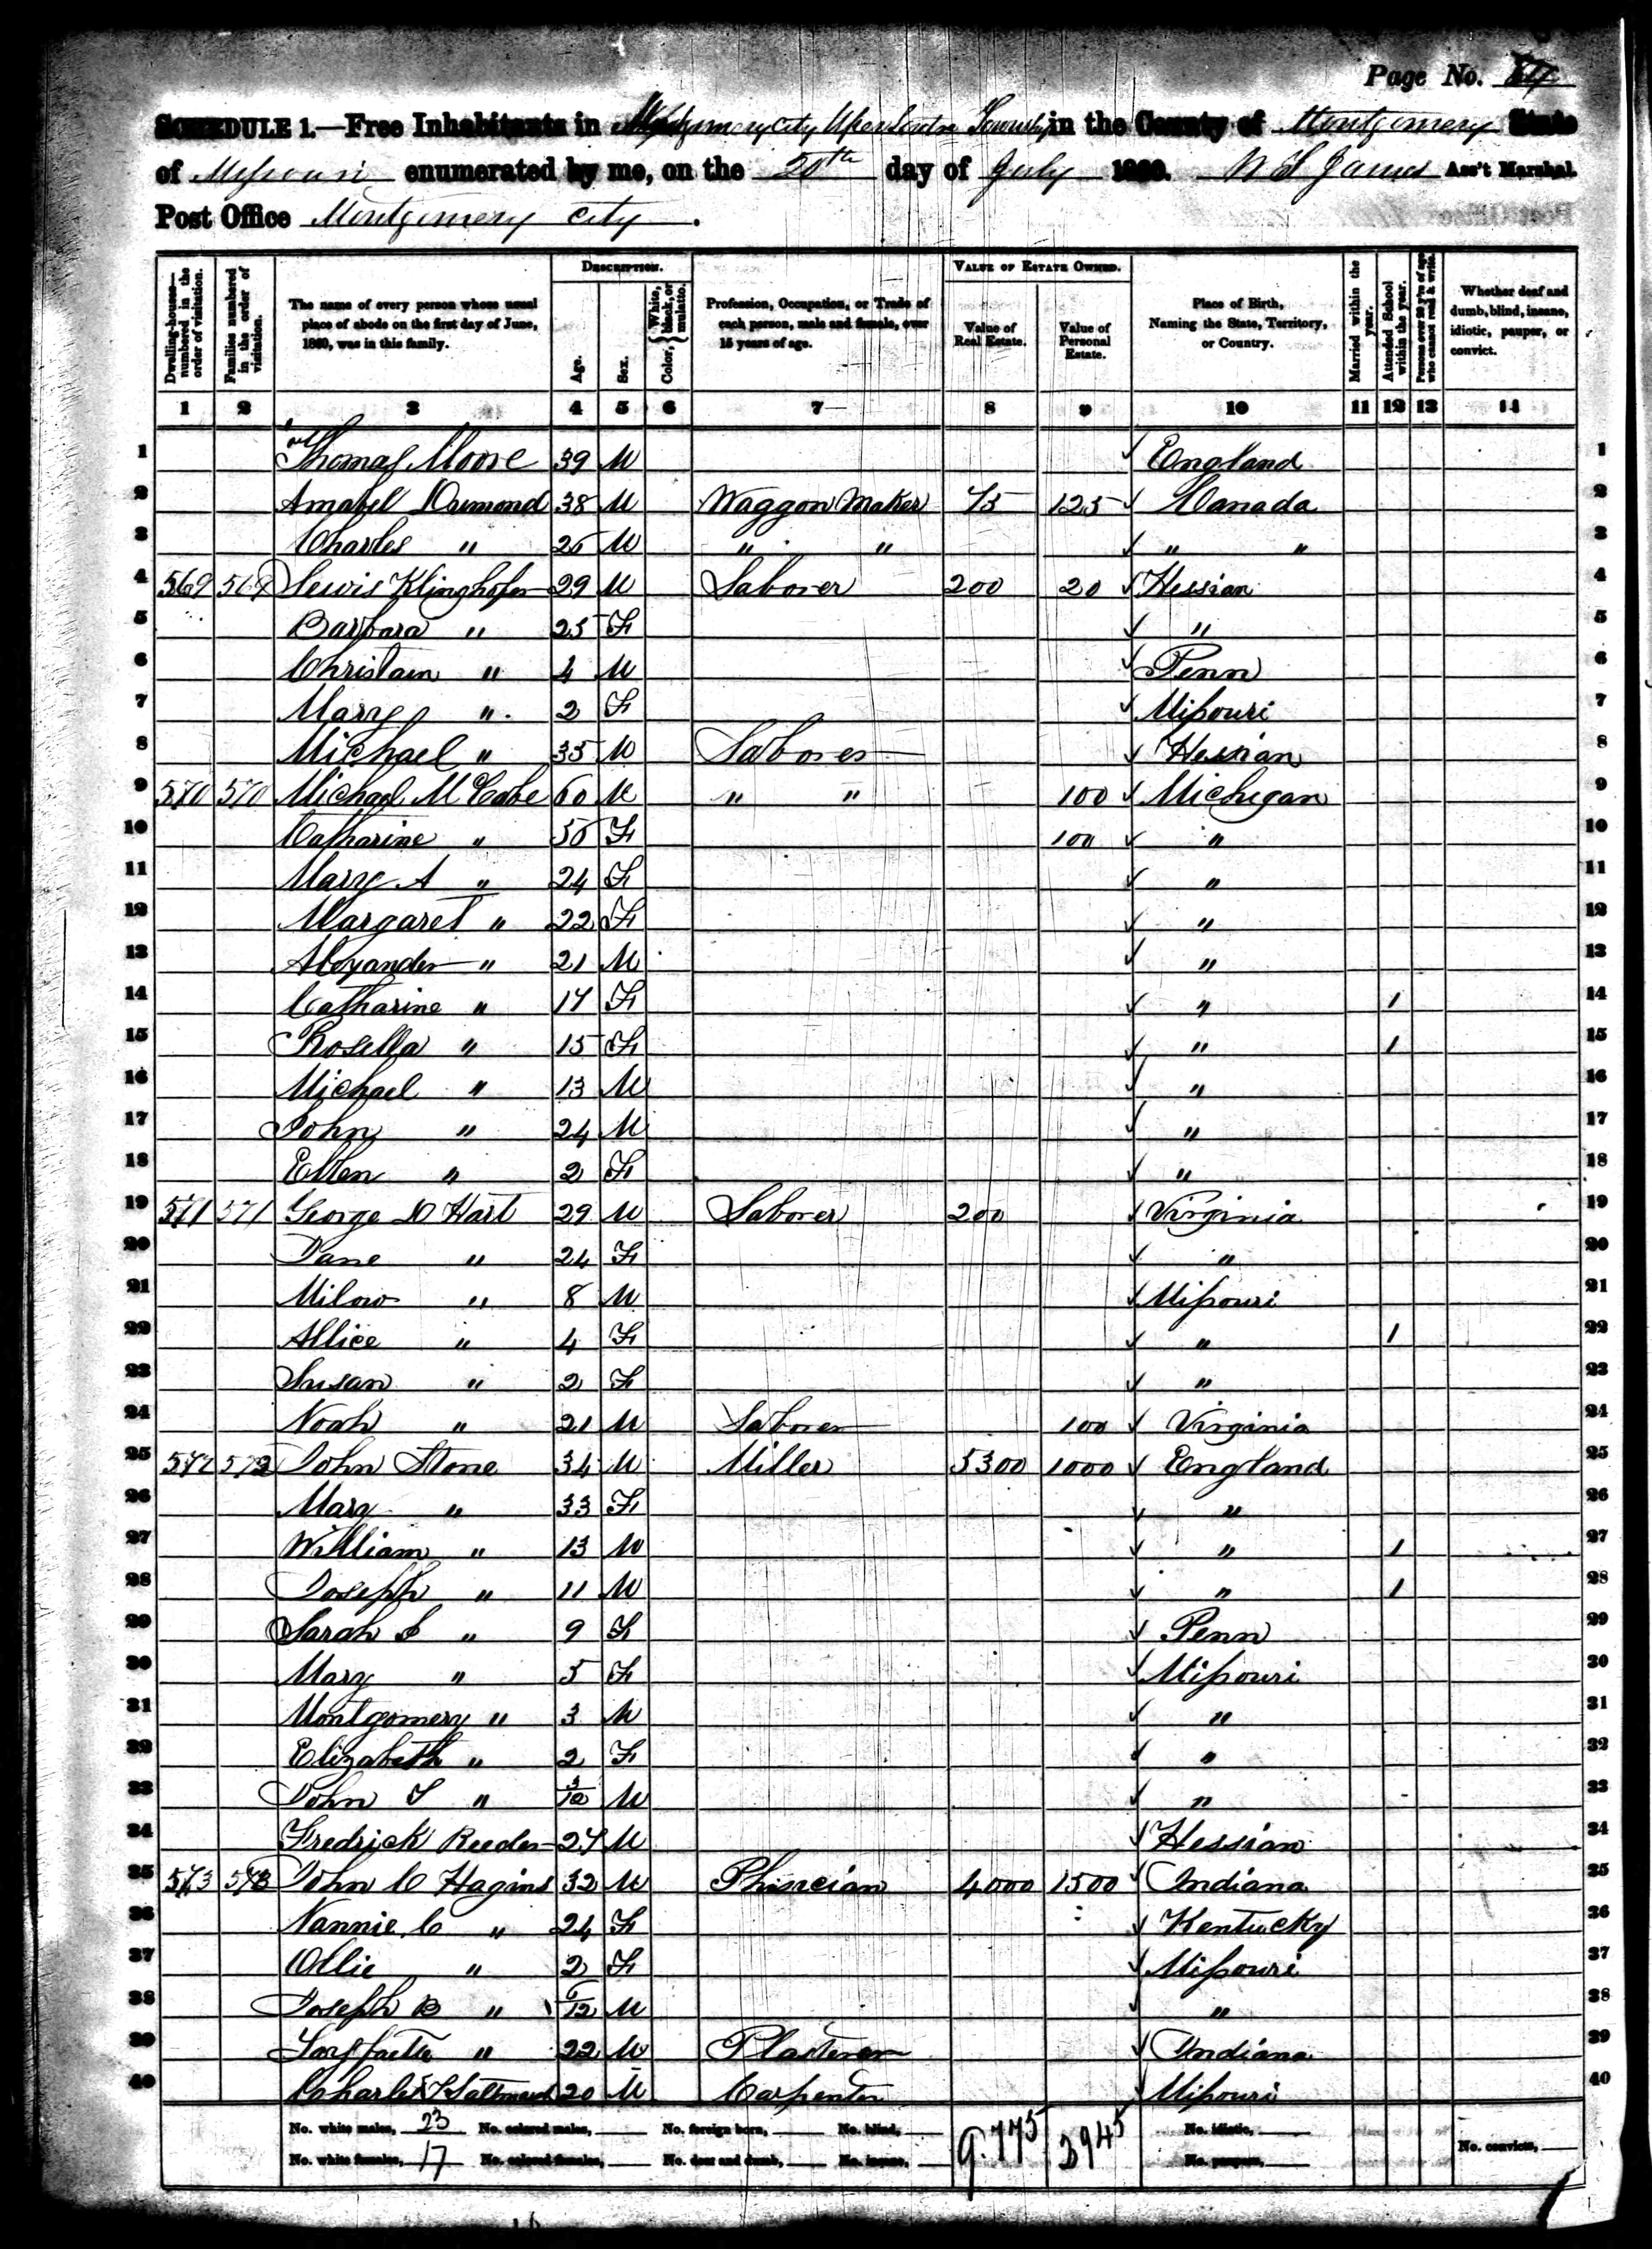 Page No.
SCHEDULE 1.—Free Inhabitants in Montgomery City Uper Loutre Township in the County of Montgomery State
of Missouri enumerated by me, on the 20th day of July 1860. Ass't Marshal.
Post Office Montgomery City.
Dwelling-houses—numbered in the order of visitation. Families numbered in the order of visitation. The name of every person whose usual place of abode on the first day of June, 1860, was in this family. DESCRIPTION. Age. Sex. Color, White, black, or mulatto. Profession, Occupation, or Trade of each person, male and female, over 15 years of age. VALUE OF ESTATE OWNED. Value of Real Estate. Value of Personal Estate. Place of Birth, Naming the State, Territory, or Country. Married within the year. Attended School within the year. Persons over 20 y'rs of age who cannot read & write. Whether deaf and dumb, blind, insane, idiotic, pauper, or convict.
1 2 3 4 5 6 7 8 9 10 11 12 13 14
1 Thomas Moore 39 M England 1
2 Amabel Dumond 38 M Waggon Maker 75 125 Canada 2
3 Charles " 25 M " " " " 3
4 569 569 Lewis Klinghofer 29 M Laborer 200 20 Hessian 4
5 Barbara " 25 F " 5
6 Christain " 4 M Penn 6
7 Mary " 2 F Missouri 7
8 Michael " 35 M Laborer Hessian 8
9 570 570 Michael McCabe 60 M " " 100 Michigan 9
10 Catharine " 50 F 100 " 10
11 Mary A " 24 F " 11
12 Margaret " 22 F " 12
13 Alexander " 21 M " 13
14 Catharine " 17 F " 1 14
15 Rosella " 15 F " 1 15
16 Michael " 13 M " 16
17 John " 24 M " 17
18 Ellen " 2 F " 18
19 571 571 George D Hart 29 M Laborer 200 Virginia 19
20 Jane " 24 F " 20
21 Milow " 8 M Missouri 21
22 Allice " 4 F " 1 22
23 Susan " 2 F " 23
24 Noah " 21 M Laborer 100 Virginia 24
25 572 572 John Stone 34 M Miller 5300 1000 England 25
26 Mary " 33 F " 26
27 William " 13 M " 1 27
28 Joseph " 11 M " 1 28
29 Sarah J " 9 F Penn 29
30 Mary " 5 F Missouri 30
31 Montgomery " 3 M " 31
32 Elizabeth " 2 F " 32
33 John T " 3/12 M " 33
34 Fredrick Reeder 27 M Hessian 34
35 573 573 John C Hagins 32 M Phisician 4000 1500 Indiana 35
36 Nannie C " 24 F Kentucky 36
37 Ollie " 2 F Missouri 37
38 Joseph B " 6/12 M " 38
39 " 22 M Plasterer Indiana 39
40 Charles 20 M Carpenter Missouri 40
No. white males, 23 No. colored males, No. foreign born, No. blind, 9.775 3945 No. idiotic,
No. white females, 17 No. colored females, No. deaf and dumb, No. insane, No. paupers, No. convicts,